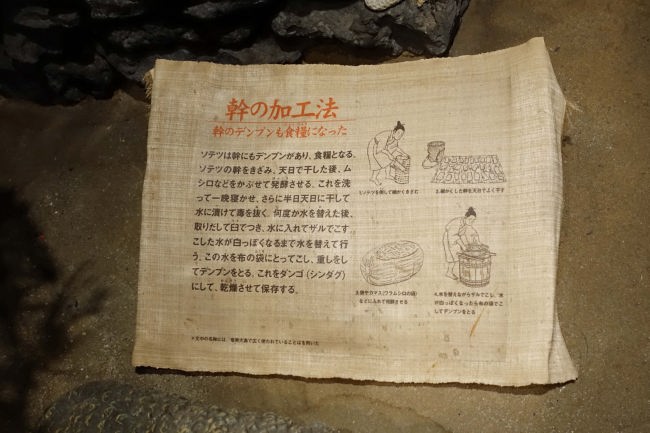 幹の加工法
幹のデンプンも食糧になった
ソテツは幹にもデンプンがあり、食糧となる。
ソテツの幹をきざみ、天日で干した後、ム
シロなどをかぶせて発酵させる。これを洗
って一晩寝かせ、さらに半日天日に干して
水に漬けて毒を抜く。何度か水を替えた後、
取りだして臼でつき、水に入れてザルでこす。
こした水が白っぽくなるまで水を替えて行
う。この水を布の袋にとってこし、重しをし
てデンプンをとる。これをダンゴ(シンダグ)
にして、乾燥させて保存する。
1.ソテツを倒して細かくきざむ
2.細かくした幹を天日でよく干す
3.俵やカマス(ワラムシロの袋)
などに入れて発酵させる
4.水を替えながらザルでこし、水
が白っぽくなったら布の袋でこ
してデンプンをとる
※文中の名称には、奄美大島で広く使われていることばを用いた